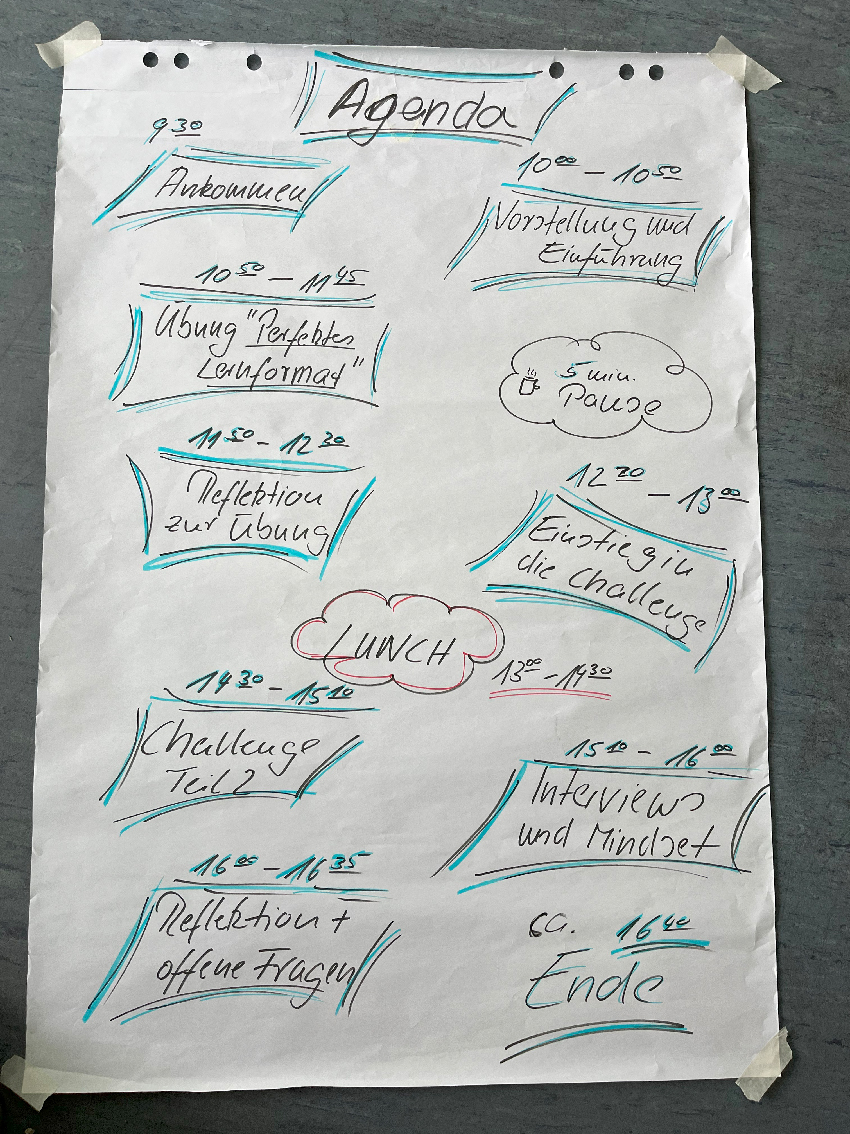 Agenda
9 30
Ankommen
10 00 – 10 50
Vorstellung und
Einführung
10 50 – 11 45
Übung "Perfektes
Lernformat"
5 min.
Pause
11 50 – 12 30
Reflektion
zur Übung
12 30 – 13 00
Einstieg in
die Challenge
LUNCH
13 00 – 14 30
14 30 – 15 10
Challenge
Teil 2
15 10 – 16 00
Interviews
und Mindset
16 00 – 16 35
Reflektion +
offene Fragen
ca. 16 40
Ende